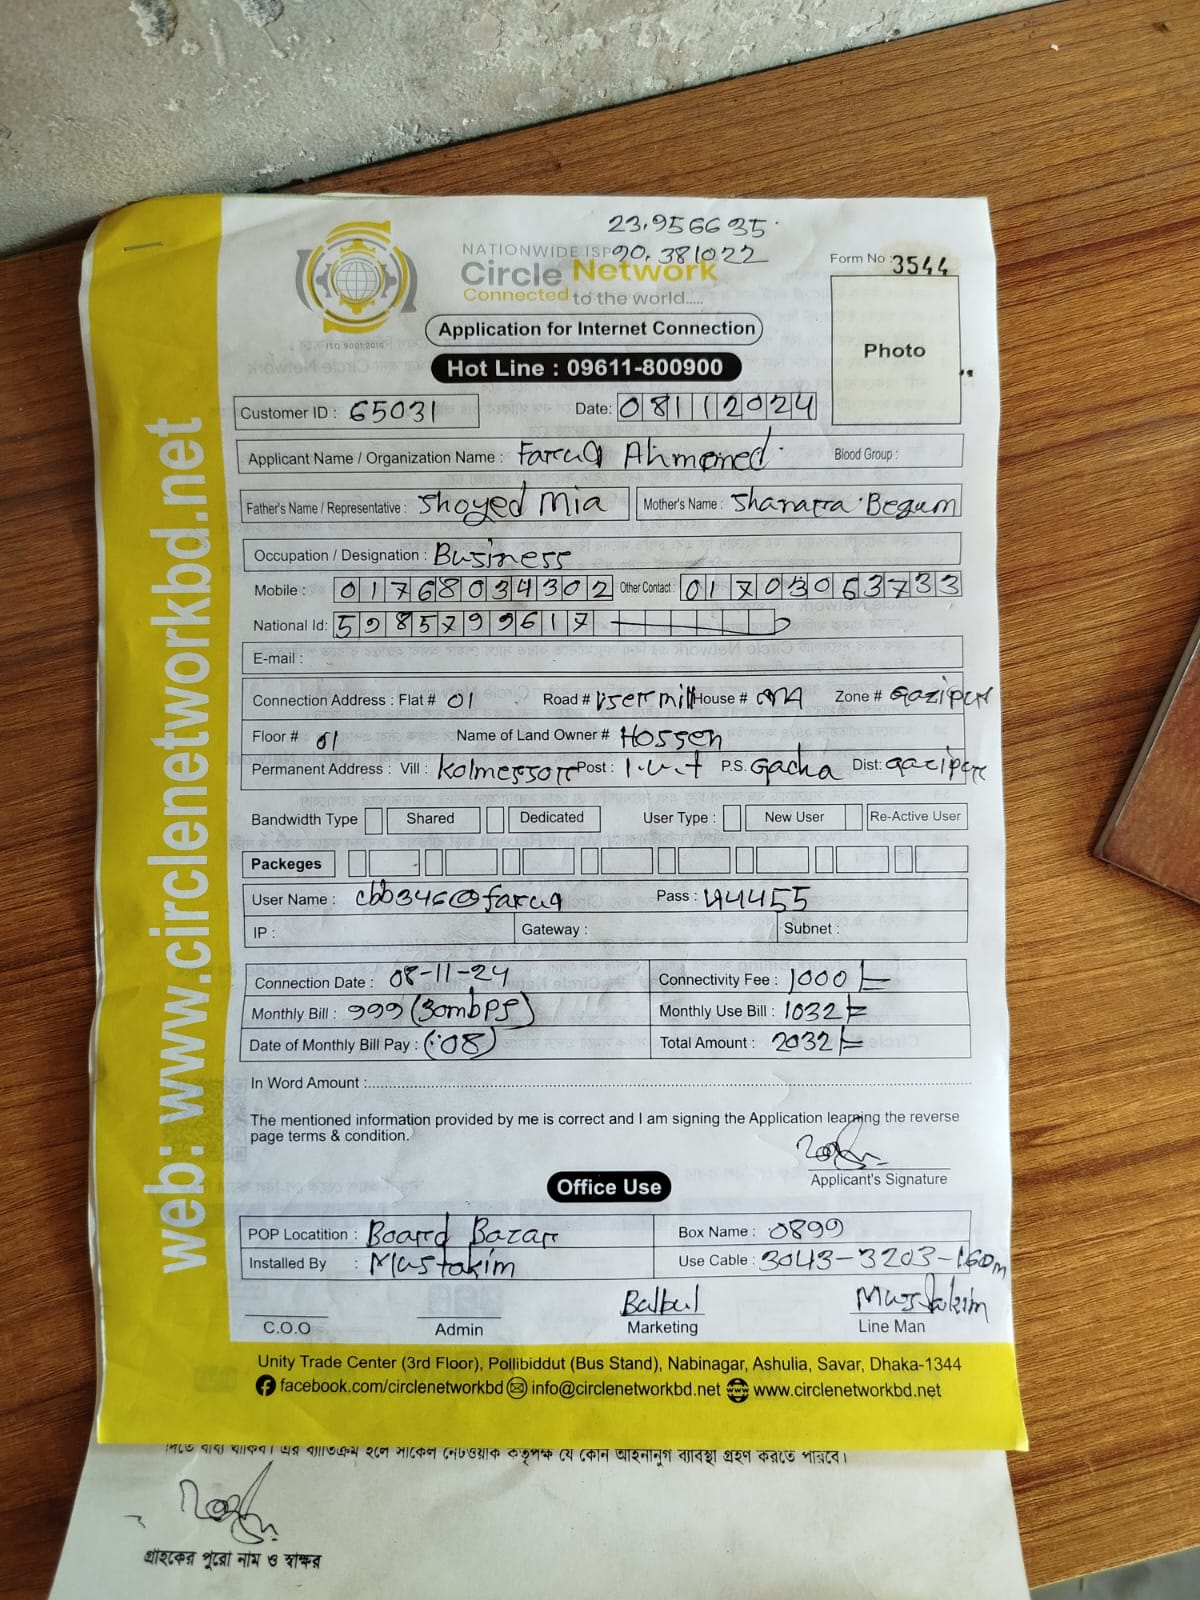 23.956635
NATIONWIDE ISP 90.381022
Circle Network
Connected to the world.....
ISO 9001:2016
Form No 3544
Photo
Application for Internet Connection
Hot Line : 09611-800900
Customer ID : 65031 Date: 08112024
Applicant Name / Organization Name : Faruq Ahmmed Blood Group :
Father's Name / Representative : Shoyed Mia Mother's Name : Sharara Begum
Occupation / Designation : Business
Mobile : 01768034302 Other Contact : 01703063733
National Id: 5985799617
E-mail :
Connection Address : Flat # 01 Road # House # Zone # Gazipur
Floor # 01 Name of Land Owner # Hossen
Permanent Address : Vill : Kolmessorr Post : I.U.T P.S. Gacha Dist: Gazipur
Bandwidth Type Shared Dedicated User Type : New User Re-Active User
Packeges
User Name : cbb346@faruq Pass : 44455
IP : Gateway : Subnet :
Connection Date : 08-11-24 Connectivity Fee : 1000/=
Monthly Bill : 999 (30mbps) Monthly Use Bill : 1032/=
Date of Monthly Bill Pay : (08) Total Amount : 2032/=
In Word Amount :
The mentioned information provided by me is correct and I am signing the Application learning the reverse
page terms & condition.
Applicant's Signature
Office Use
POP Locatition : Board Bazar Box Name : 0899
Installed By : Mustakim Use Cable : 3043-3203-160m
Balbul Mustakim
C.O.O Admin Marketing Line Man
Unity Trade Center (3rd Floor), Pollibiddut (Bus Stand), Nabinagar, Ashulia, Savar, Dhaka-1344
facebook.com/circlenetworkbd info@circlenetworkbd.net www.circlenetworkbd.net
web: www.circlenetworkbd.net
দিতে বাধ্য থাকিব। এর ব্যতিক্রম হলে সার্কেল নেটওয়ার্ক কতৃপক্ষ যে কোন আইনানুগ ব্যাবস্থা গ্রহণ করতে পারবে।
গ্রাহকের পুরো নাম ও স্বাক্ষর